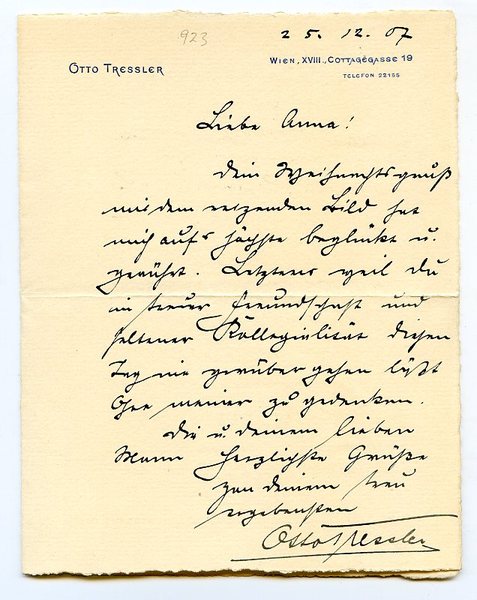 923
25. 12. 07
OTTO TRESSLER
WIEN, XVIII., COTTAGEGASSE 19
TELEFON 22155
Liebe Anna!
Dein Weihnachtsgruß
mit dem reizenden Bild hat
mich auf's höchste beglückt u.
gerührt. Letzteres weil Du
in treuer Freundschaft und
seltener Kollegialität diesen
Tag nie vorüber gehen läßt
Ohne meiner zu gedenken.
Dir u. deinem lieben
Mann herzlichste Grüße
von deinem treu
ergebensten
Otto Tressler